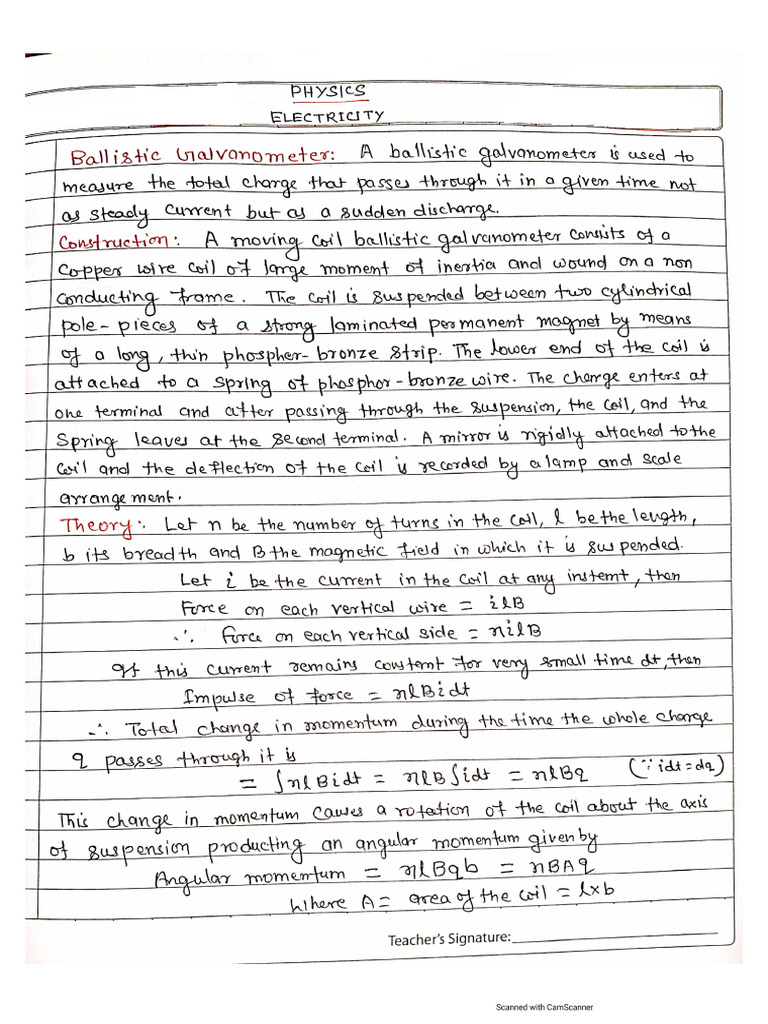 PHYSICS
ELECTRICITY
Ballistic Galvanometer: A ballistic galvanometer is used to
measure the total charge that passes through it in a given time not
as steady current but as a sudden discharge.
Construction: A moving coil ballistic galvanometer consists of a
Copper wire coil of large moment of inertia and wound on a non
conducting frame. The coil is suspended between two cylindrical
pole-pieces of a strong laminated permanent magnet by means
of a long, thin phospher-bronze strip. The lower end of the coil is
attached to a spring of phosphor-bronze wire. The charge enters at
one terminal and after passing through the suspension, the coil, and the
Spring leaves at the second terminal. A mirror is rigidly attached to the
coil and the deflection of the coil is recorded by a lamp and scale
arrangement.
Theory: Let n be the number of turns in the coil, l be the length,
b its breadth and B the magnetic field in which it is suspended.
Let i be the current in the coil at any instant, then
Force on each vertical wire = ilB
∴ force on each vertical side = nilB
If this current remains constant for very small time dt, then
Impulse of force = nlBidt
∴ Total change in momentum during the time the whole charge
q passes through it is
= ∫nlBidt = nlB∫idt = nlBq (∵ idt=dq)
This change in momentum causes a rotation of the coil about the axis
of suspension producting an angular momentum given by
Angular momentum = nlBqb = nBAq
Where A = area of the coil = l×b
Teacher's Signature:
Scanned with CamScanner